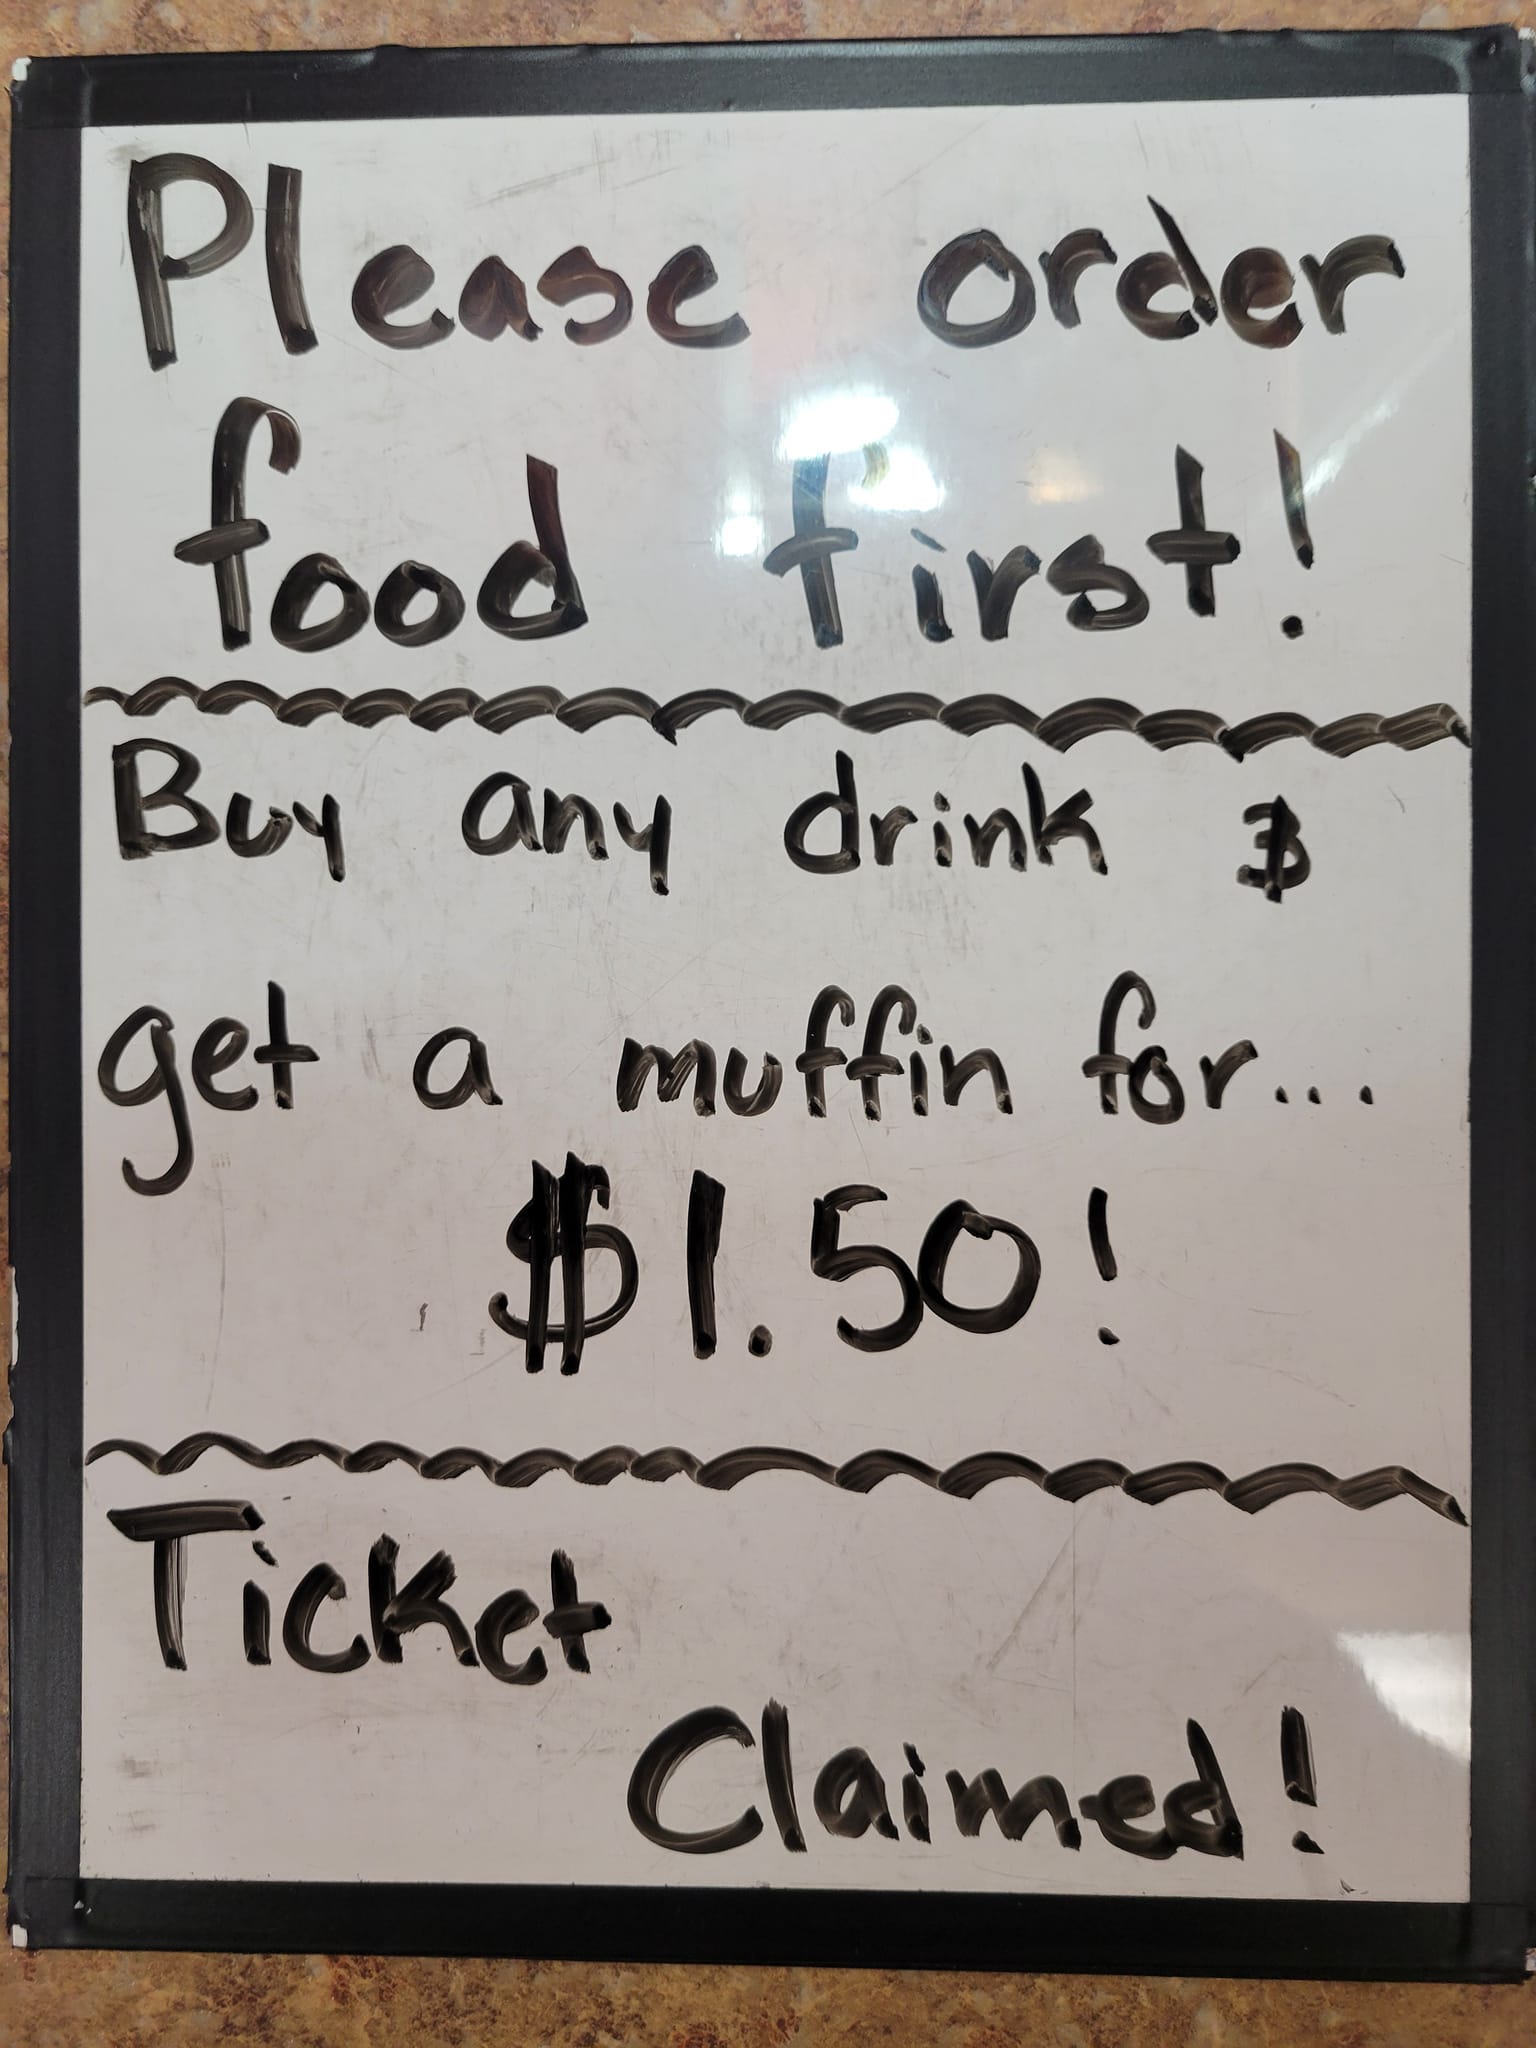 Please order
food first!
Buy any drink &
get a muffin for...
$1.50!
Ticket
Claimed!